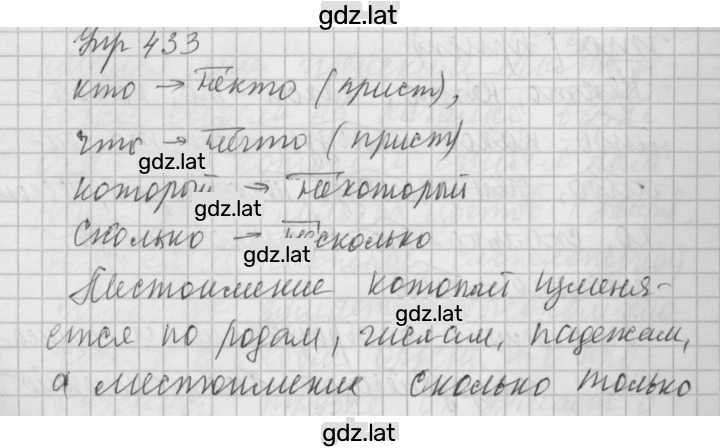 gdz.lat
Упр 433
кто → некто (прист),
что → нечто (прист)
gdz.lat
который → некоторый
gdz.lat
Сколько → несколько
gdz.lat
Местоимение который изменя-
gdz.lat
ется по родам, числам, падежам,
а местоимение сколько только
gdz.lat